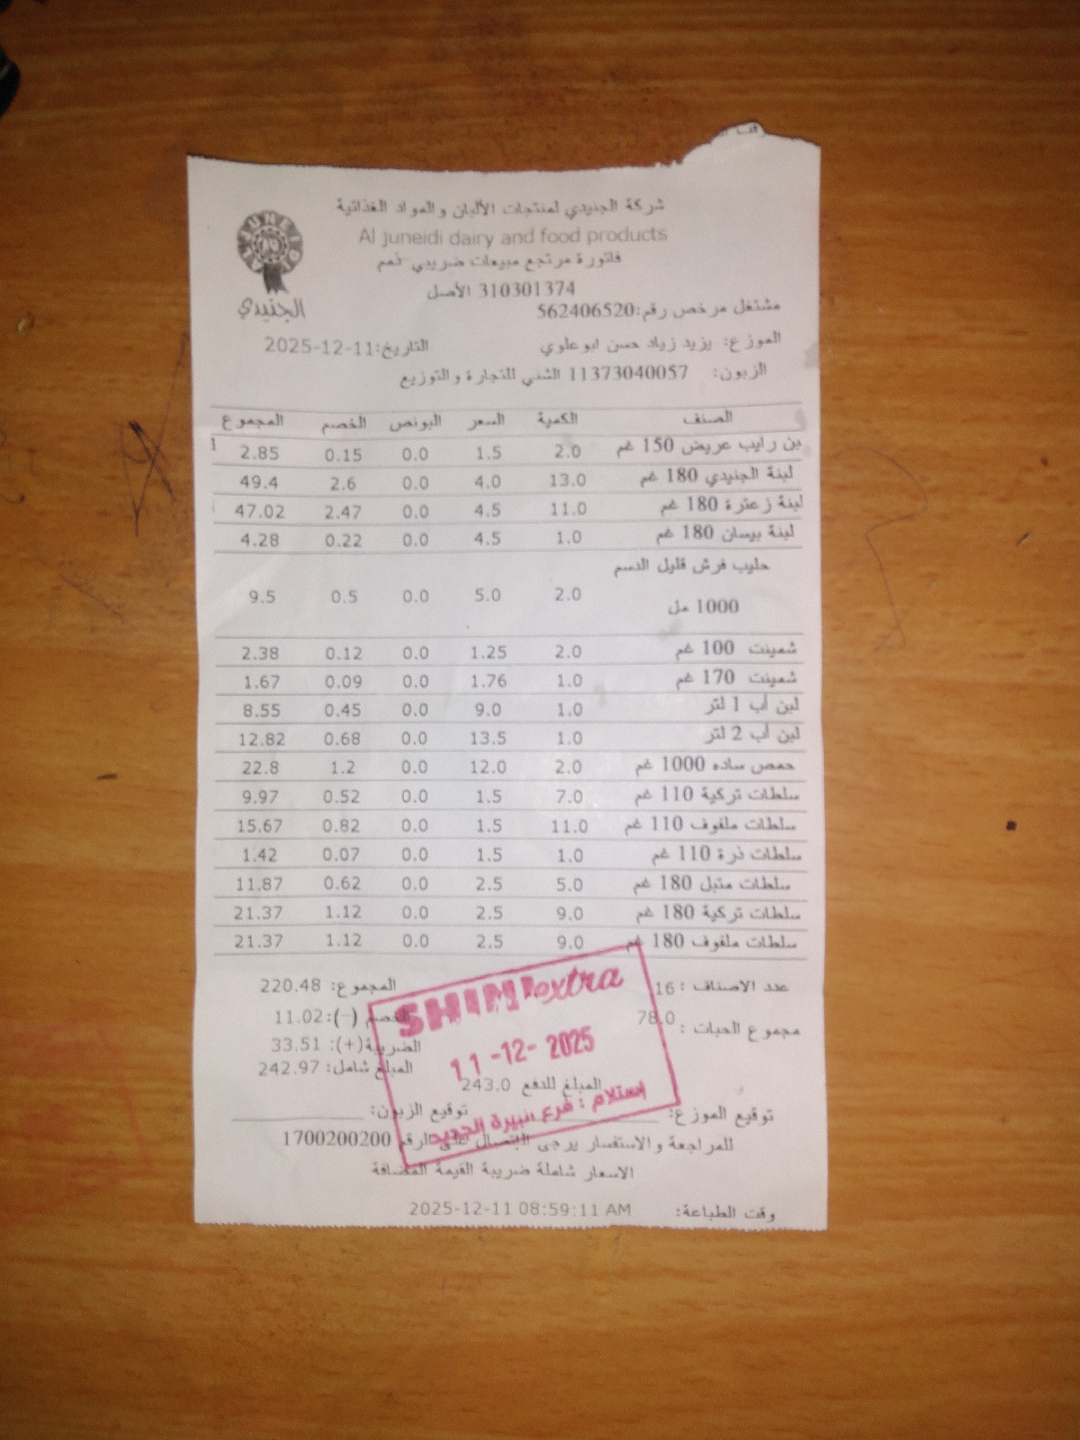 شركة الجنيدي لمنتجات الألبان والمواد الغذائية
AL JUNEIDI
الجنيدي
Al juneidi dairy and food products
فاتورة مرتجع مبيعات ضريبي ذمم
310301374 الأصل
مشتغل مرخص رقم:562406520
الموزع: يزيد زياد حسن ابو علوي التاريخ:2025-12-11
الزبون: 11373040057 الشني للتجارة والتوزيع
الصنف الكمية السعر البونص الخصم المجموع
بن رايب عريض 150 غم 2.0 1.5 0.0 0.15 2.85
لبنة الجنيدي 180 غم 13.0 4.0 0.0 2.6 49.4
لبنة زعترة 180 غم 11.0 4.5 0.0 2.47 47.02
لبنة بيسان 180 غم 1.0 4.5 0.0 0.22 4.28
حليب فرش قليل الدسم
1000 مل 2.0 5.0 0.0 0.5 9.5
شمينت 100 غم 2.0 1.25 0.0 0.12 2.38
شمينت 170 غم 1.0 1.76 0.0 0.09 1.67
لبن أب 1 لتر 1.0 9.0 0.0 0.45 8.55
لبن أب 2 لتر 1.0 13.5 0.0 0.68 12.82
حمص ساده 1000 غم 2.0 12.0 0.0 1.2 22.8
سلطات تركية 110 غم 7.0 1.5 0.0 0.52 9.97
سلطات ملفوف 110 غم 11.0 1.5 0.0 0.82 15.67
سلطات ذرة 110 غم 1.0 1.5 0.0 0.07 1.42
سلطات متبل 180 غم 5.0 2.5 0.0 0.62 11.87
سلطات تركية 180 غم 9.0 2.5 0.0 1.12 21.37
سلطات ملفوف 180 غم 9.0 2.5 0.0 1.12 21.37
عدد الاصناف : 16 المجموع: 220.48
الخصم (-):11.02
مجموع الحبات : 78.0
الضريبة(+): 33.51
المبلغ شامل: 242.97
SHINI extra
11-12-2025
استلام : فرع البيرة الجديد
المبلغ للدفع 243.0
توقيع الموزع: توقيع الزبون:
للمراجعة والاستفسار يرجى الإتصال على الرقم 1700200200
الاسعار شاملة ضريبة القيمة المضافة
وقت الطباعة: 2025-12-11 08:59:11 AM